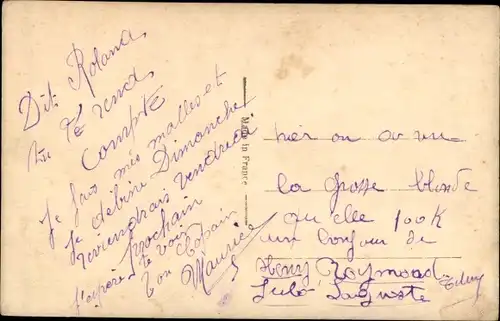 Dit Roland
tu te rend
Compte
Je fais mes malles et
je débine Dimanche
reviendrais vendredi
prochain
J'espère te voir
Ton Copain
Maurice
Made in France
hier on a vu
la grosse blonde
qu'elle
un bonjour de
Henry Raymond